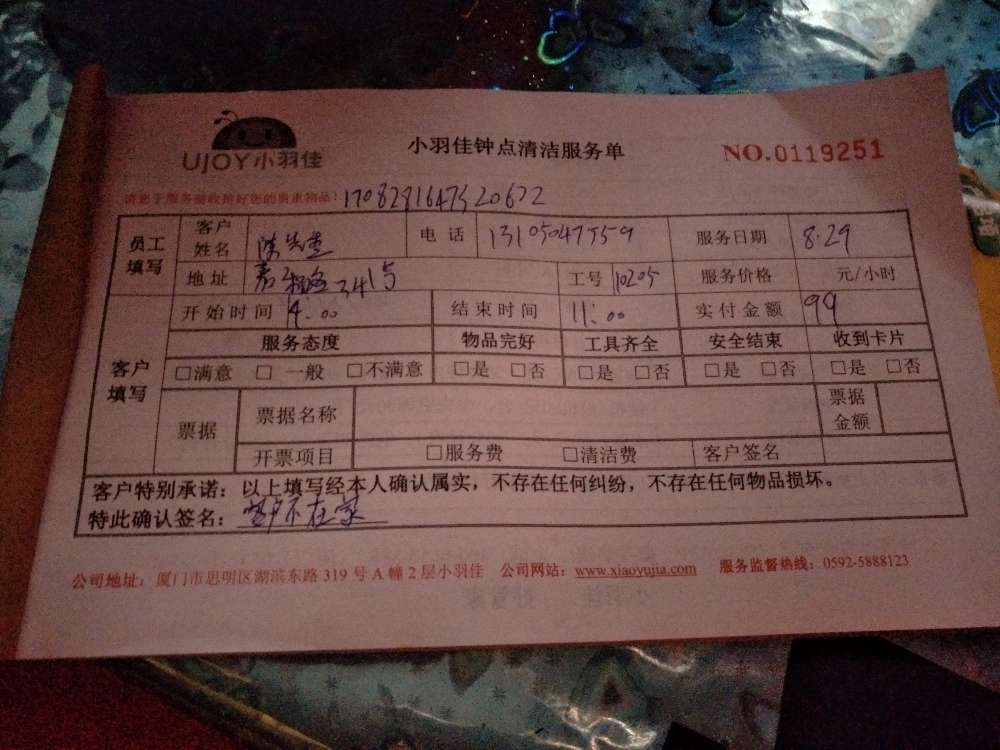 UJOY小羽佳
小羽佳钟点清洁服务单
NO.0119251
请您于服务前收拾好您的贵重物品!
员工填写 客户姓名 陈先生 电话 13105047559 服务日期 8.29
地址 工号 10205 服务价格 元/小时
客户填写 开始时间 结束时间 11:00 实付金额 99
服务态度 物品完好 工具齐全 安全结束 收到卡片
□满意 □一般 □不满意 □是 □否 □是 □否 □是 □否 □是 □否
票据 票据名称 票据金额
开票项目 □服务费 □清洁费 客户签名
客户特别承诺：以上填写经本人确认属实，不存在任何纠纷，不存在任何物品损坏。
特此确认签名：客户不在家
公司地址：厦门市思明区湖滨东路 319 号 A 幢 2 层小羽佳 公司网站：www.xiaoyujia.com 服务监督热线：0592-5888123